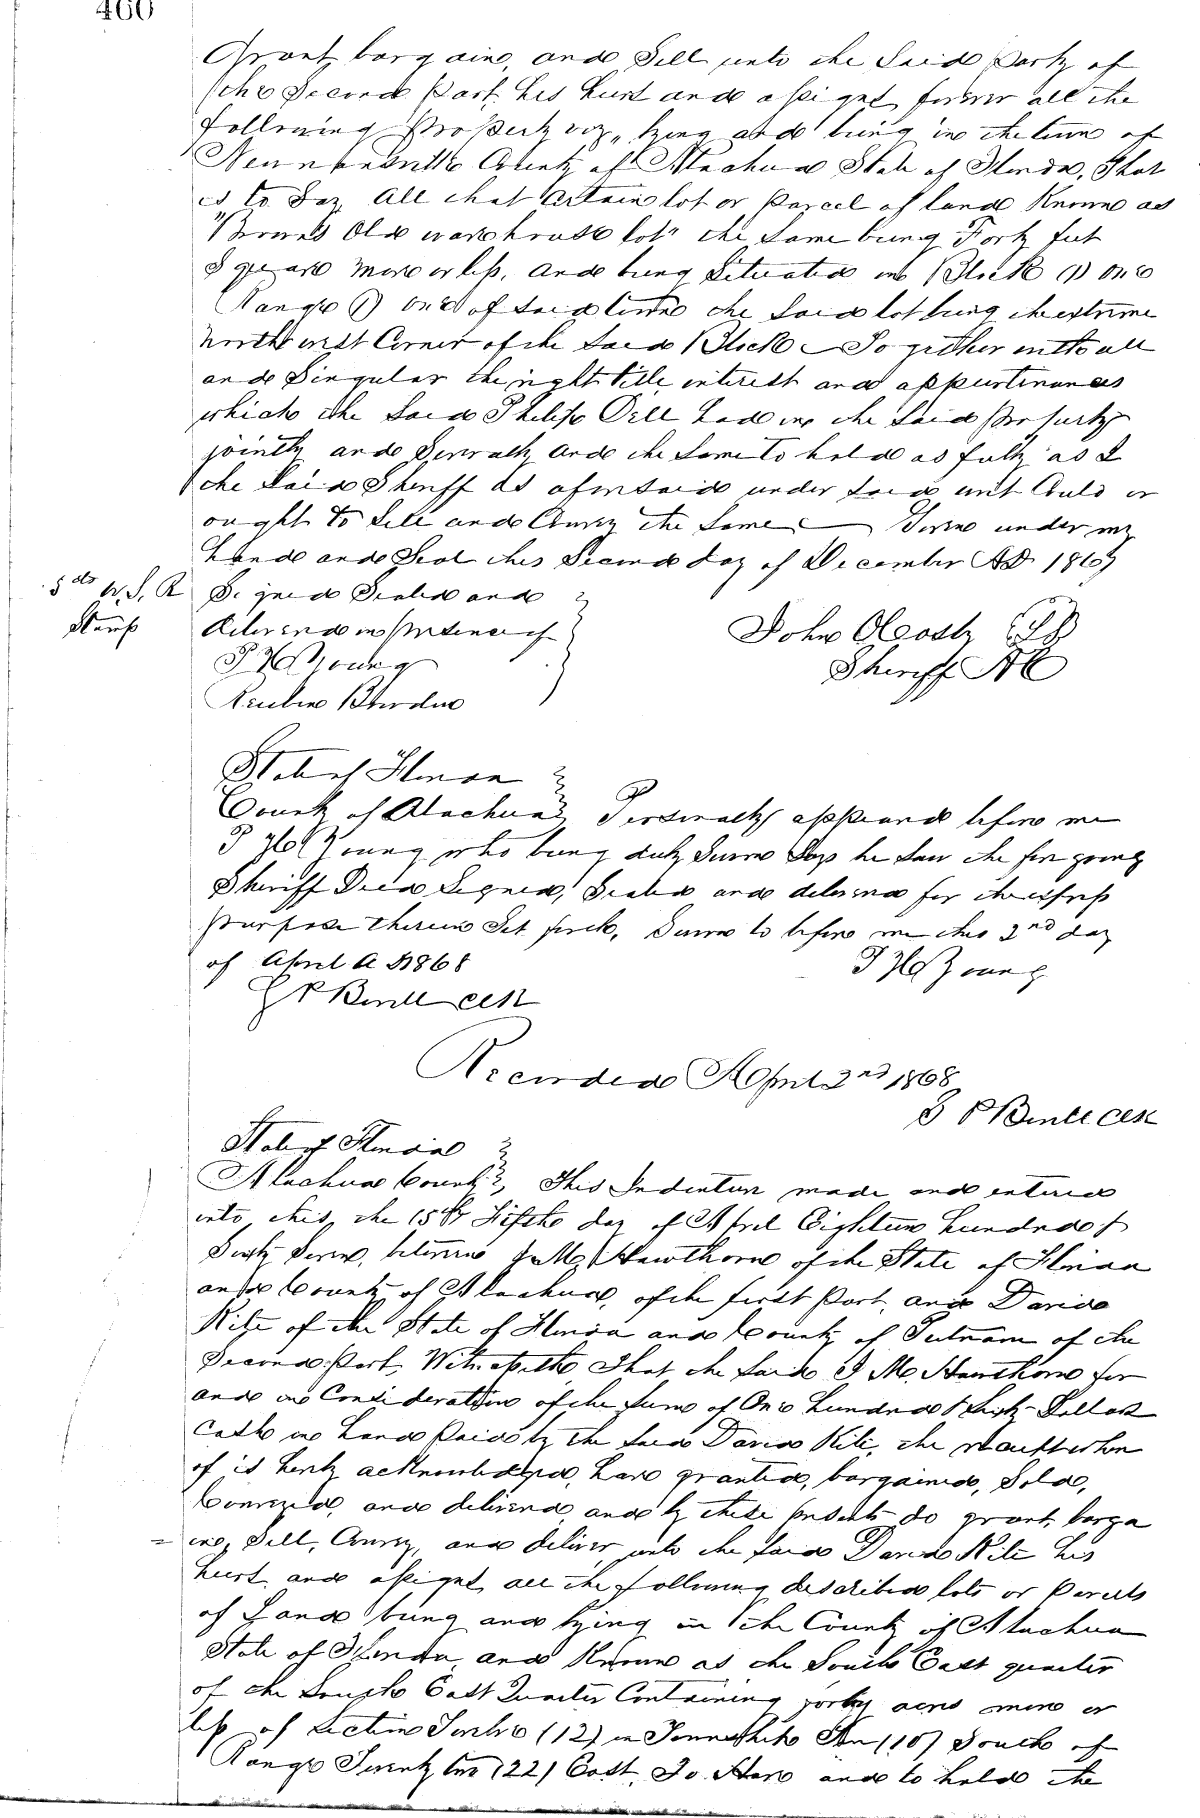 460
Grant bargain, and Sell unto the Said Party of
the Second Part, his heirs and assigns forever all the
following Property viz, lying and being in the town of
Newnansville County of Alachua State of Florida, That
is to Say All that Certain lot or Parcel of land Known as
"Browns Old warehouse lot" the Same being Forty feet
Square more or less, and being Situated in Block (1) one
Range (1) one of Said town the Said lot being the extreme
North west Corner of the Said Block — Together with all
and Singular the right title interest and appurtinances
which the Said Philip Dell had in the Said Property
jointly and Severally and the Same to hold as fully as I
the Said Sheriff as aforesaid under Said writ Could or
ought to Sell and Convey the Same — Given under my
hand and Seal this Second day of December AD 1867
5 cts U.S. R
Stamp
Signed Sealed and
delivered in presence of
T H Young
Reubin
John
Sheriff AC
State of Florida
County of Alachua Personally appeared before me
T H Young who being duly Sworn Says he Saw the fore going
Sheriff Deed Signed, Sealed and delivered for the express
purpose therein Set forth, Sworn to before me this 2nd day
of April A D 1868
T H Young
Clk
Recorded April 2nd 1868
Clk
State of Florida
Alachua County, This Indenture made and entered
into this the 15th Fifth day of April Eighteen hundred &
Sixty Seven, between J M Hawthorn of the State of Florida
and County of Alachua, of the first Part, and David
Kite of the State of Florida and County of Putnam of the
Second Part, Witnesseth, That the Said J M Hawthorn for
and in Consideration of the Sum of One hundred & Sixty Dollars
Cash in hand Paid by the Said David Kite, the receipt when
of is hereby acknowledged, have granted, bargained, Sold,
Conveyed, and delivered and by these presents do grant, barga
= in, Sell, Convey, and deliver unto the Said David Kite his
heirs and assigns all the following described lots or Parcels
of Land being and lying in the County of Alachua
State of Florida and Known as the South East quarter
of the South East Quarter Containing forty acres more or
less of Section Twelve (12) in Township Ten (10) South of
Range Twenty two (22) East, To Have and to hold the